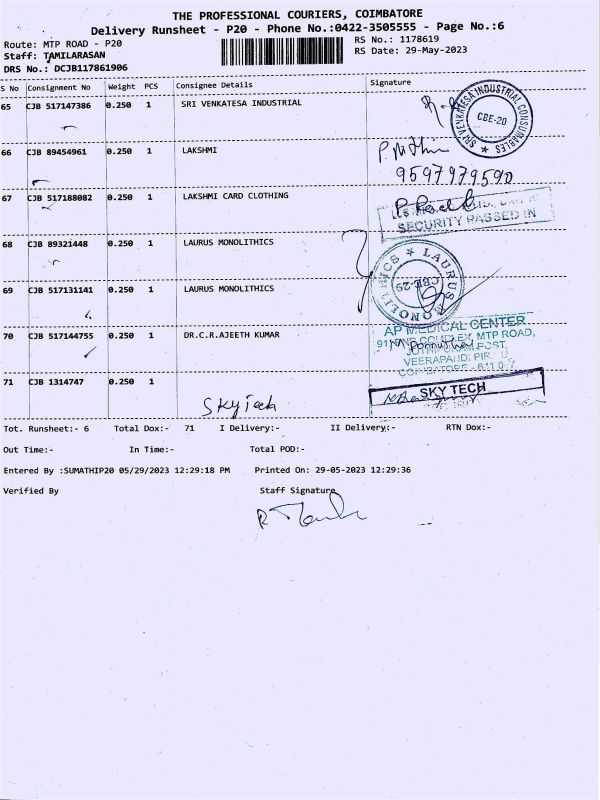 THE PROFESSIONAL COURIERS, COIMBATORE
Delivery Runsheet - P20 - Phone No.:0422-3505555 - Page No.:6
Route: MTP ROAD - P20 RS No.: 1178619
Staff: TAMILARASAN RS Date: 29-May-2023
DRS No.: DCJB117861906
S No Consignment No Weight PCS Consignee Details Signature
65 CJB 517147386 0.250 1 SRI VENKATESA INDUSTRIAL
SRI VENKATESA INDUSTRIAL CONSUMABLES
CBE-20
66 CJB 89454961 0.250 1 LAKSHMI
9597979590
67 CJB 517188082 0.250 1 LAKSHMI CARD CLOTHING
SECURITY PASSED IN
68 CJB 89321448 0.250 1 LAURUS MONOLITHICS
LAURUS MONOLITHICS
CBE-29
69 CJB 517131141 0.250 1 LAURUS MONOLITHICS
70 CJB 517144755 0.250 1 DR.C.R.AJEETH KUMAR
AP MEDICAL CENTER
MTP ROAD,
POST,
VEERAPANDI
71 CJB 1314747 0.250 1
Sky Tech
SKY TECH
Tot. Runsheet:- 6 Total Dox:- 71 I Delivery:- II Delivery:- RTN Dox:-
Out Time:- In Time:- Total POD:-
Entered By :SUMATHIP20 05/29/2023 12:29:18 PM Printed On: 29-05-2023 12:29:36
Verified By Staff Signature